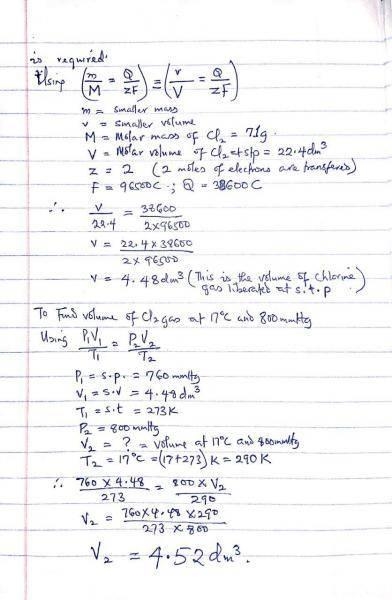 is required.
Using (m/M = Q/zF) = (v/V = Q/zF)
m = smaller mass
v = smaller volume
M = Molar mass of Cl₂ = 71g
V = Molar volume of Cl₂ at stp = 22.4dm³
z = 2 (2 moles of electrons are transfered)
F = 96500C ; Q = 38600C
∴ v/22.4 = 38600/2x96500
v = 22.4 x 38600/2 x 96500
v = 4.48dm³ (This is the volume of Chlorine
gas liberated at s.t.p
To find volume of Cl₂ gas at 17°C and 800mmHg
Using P₁V₁/T₁ = P₂V₂/T₂
P₁ = s.p. = 760mmHg
V₁ = s.v = 4.48dm³
T₁ = s.t = 273K
P₂ = 800mmHg
V₂ = ? = volume at 17°C and 800mmHg
T₂ = 17°C = (17+273)K = 290K
∴ 760 x 4.48/273 = 800 x V₂/290
V₂ = 760x4.48x290/273 x 800
V₂ = 4.52dm³.